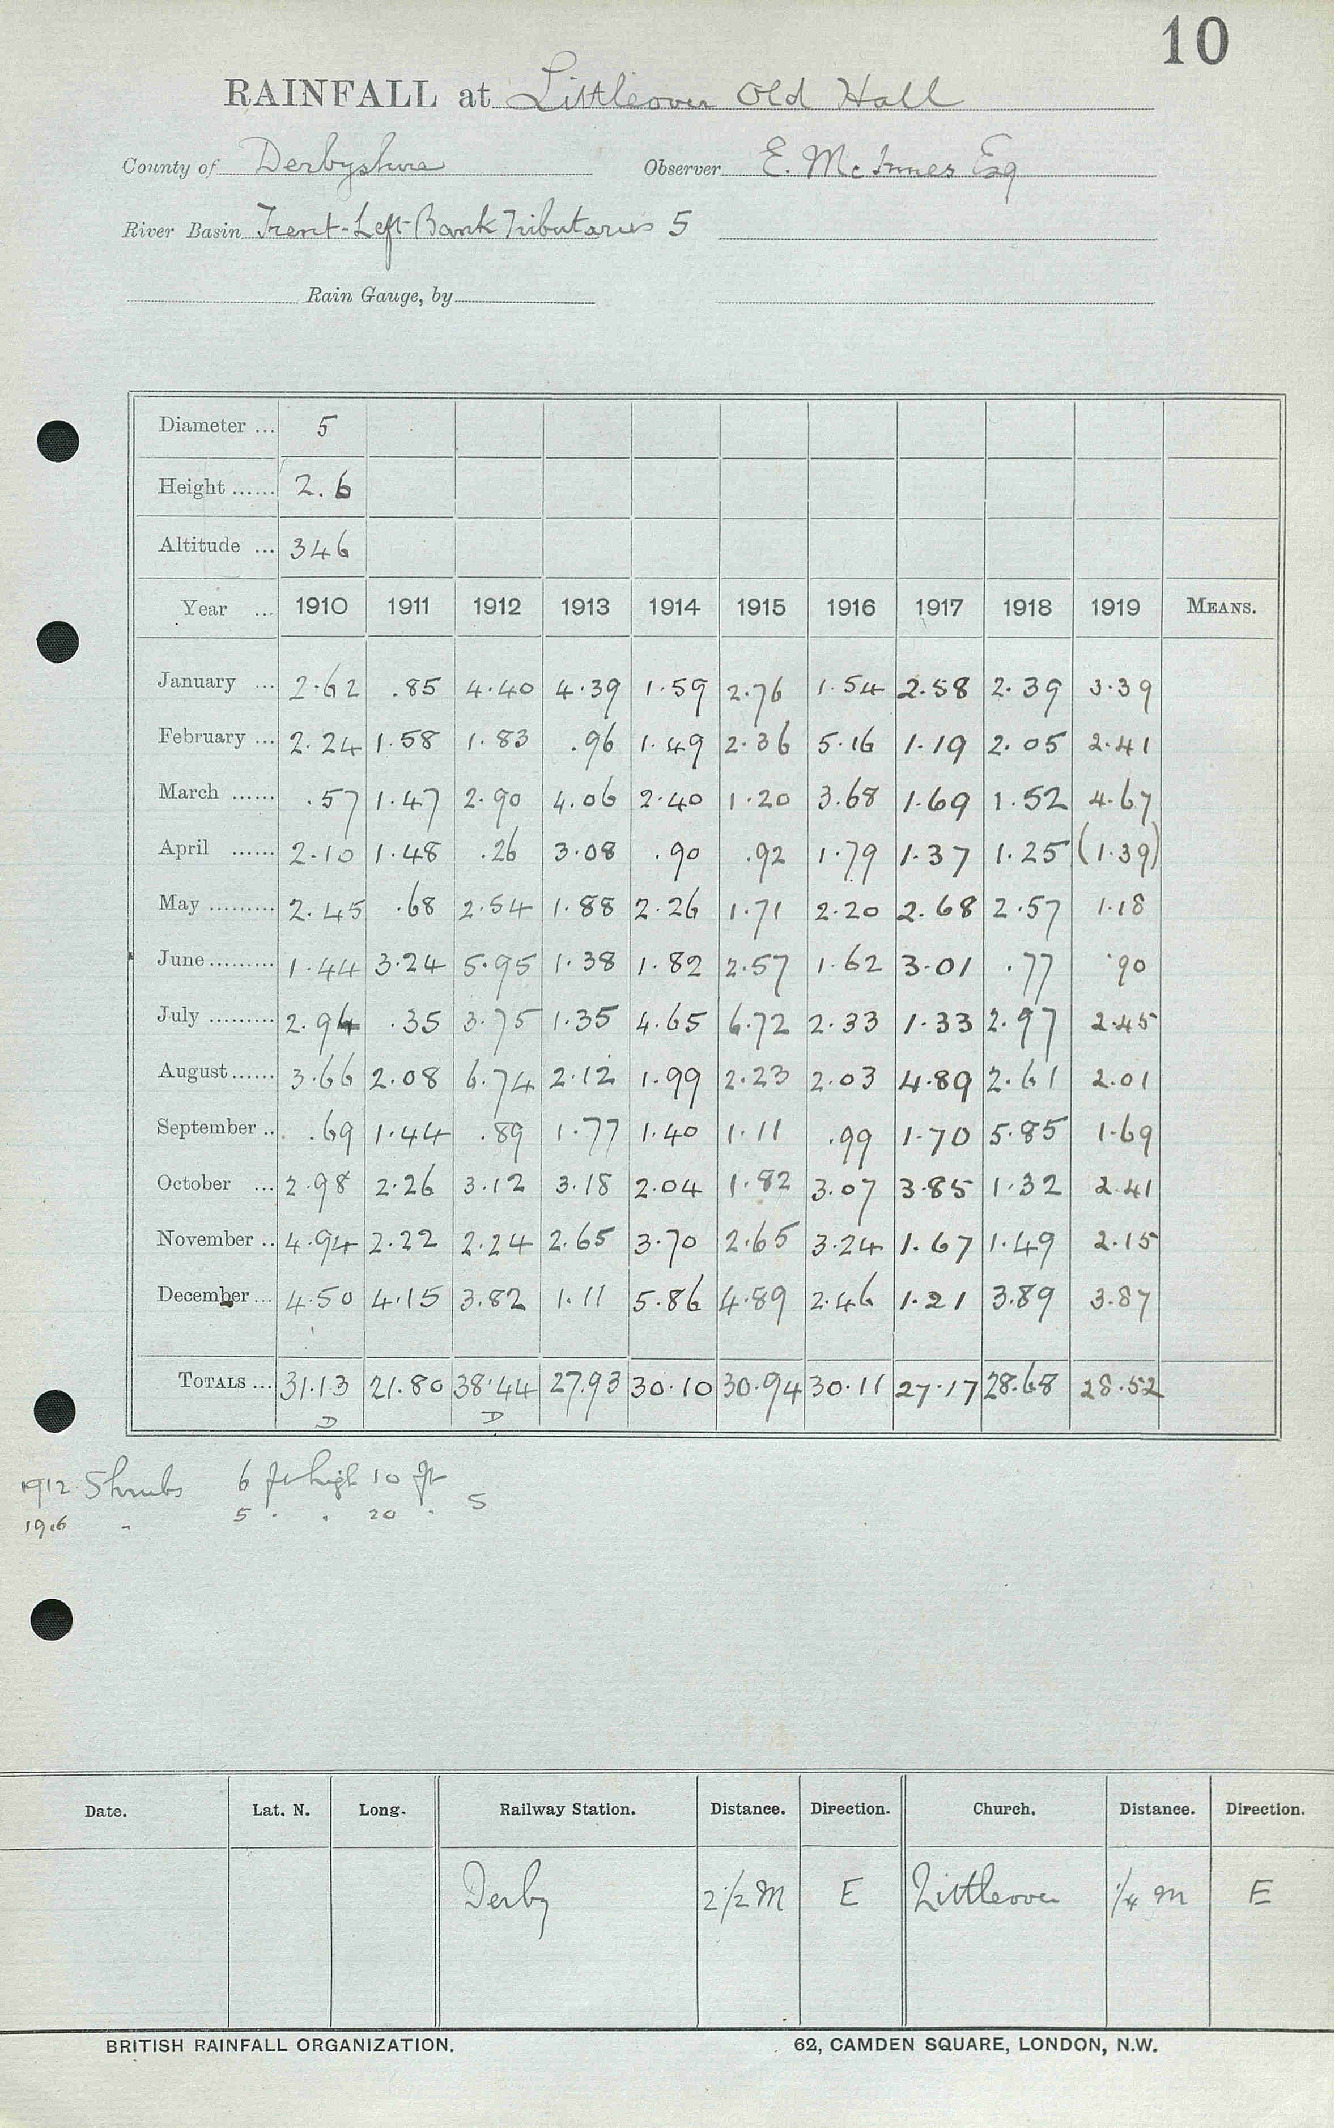 10
RAINFALL at Littleover Old Hall
County of Derbyshire Observer E. McInnes Esq
River Basin Trent-Left Bank Tributaries 5
Rain Gauge, by
Diameter ... 5
Height ...... 2.6
Altitude ... 346
Year ... 1910 1911 1912 1913 1914 1915 1916 1917 1918 1919 MEANS.
January ... 2.62 .85 4.40 4.39 1.59 2.76 1.54 2.58 2.39 3.39
February ... 2.24 1.58 1.83 .96 1.49 2.36 5.16 1.19 2.05 2.41
March ...... .57 1.47 2.90 4.06 2.40 1.20 3.68 1.69 1.52 4.67
April ...... 2.10 1.48 .26 3.08 .90 .92 1.79 1.37 1.25 (1.39)
May ......... 2.45 .68 2.54 1.88 2.26 1.71 2.20 2.68 2.57 1.18
June ......... 1.44 3.24 5.95 1.38 1.82 2.57 1.62 3.01 .77 .90
July ......... 2.94 .35 3.75 1.35 4.65 6.72 2.33 1.33 2.97 2.45
August ...... 3.66 2.08 6.74 2.12 1.99 2.23 2.03 4.89 2.61 2.01
September .. .69 1.44 .89 1.77 1.40 1.11 .99 1.70 5.85 1.69
October ... 2.98 2.26 3.12 3.18 2.04 1.82 3.07 3.85 1.32 2.41
November .. 4.94 2.22 2.24 2.65 3.70 2.65 3.24 1.67 1.49 2.15
December ... 4.50 4.15 3.82 1.11 5.86 4.89 2.46 1.21 3.89 3.87
TOTALS ... 31.13 21.80 38.44 27.93 30.10 30.94 30.11 27.17 28.68 28.52
D D
1912 Shrubs 6 ft high 10 ft
1916 " 5 " " 20 " S
Date. Lat. N. Long. Railway Station. Distance. Direction. Church. Distance. Direction.
Derby 2 1/2 M E Littleover 1/4 m E
BRITISH RAINFALL ORGANIZATION. 62, CAMDEN SQUARE, LONDON, N.W.